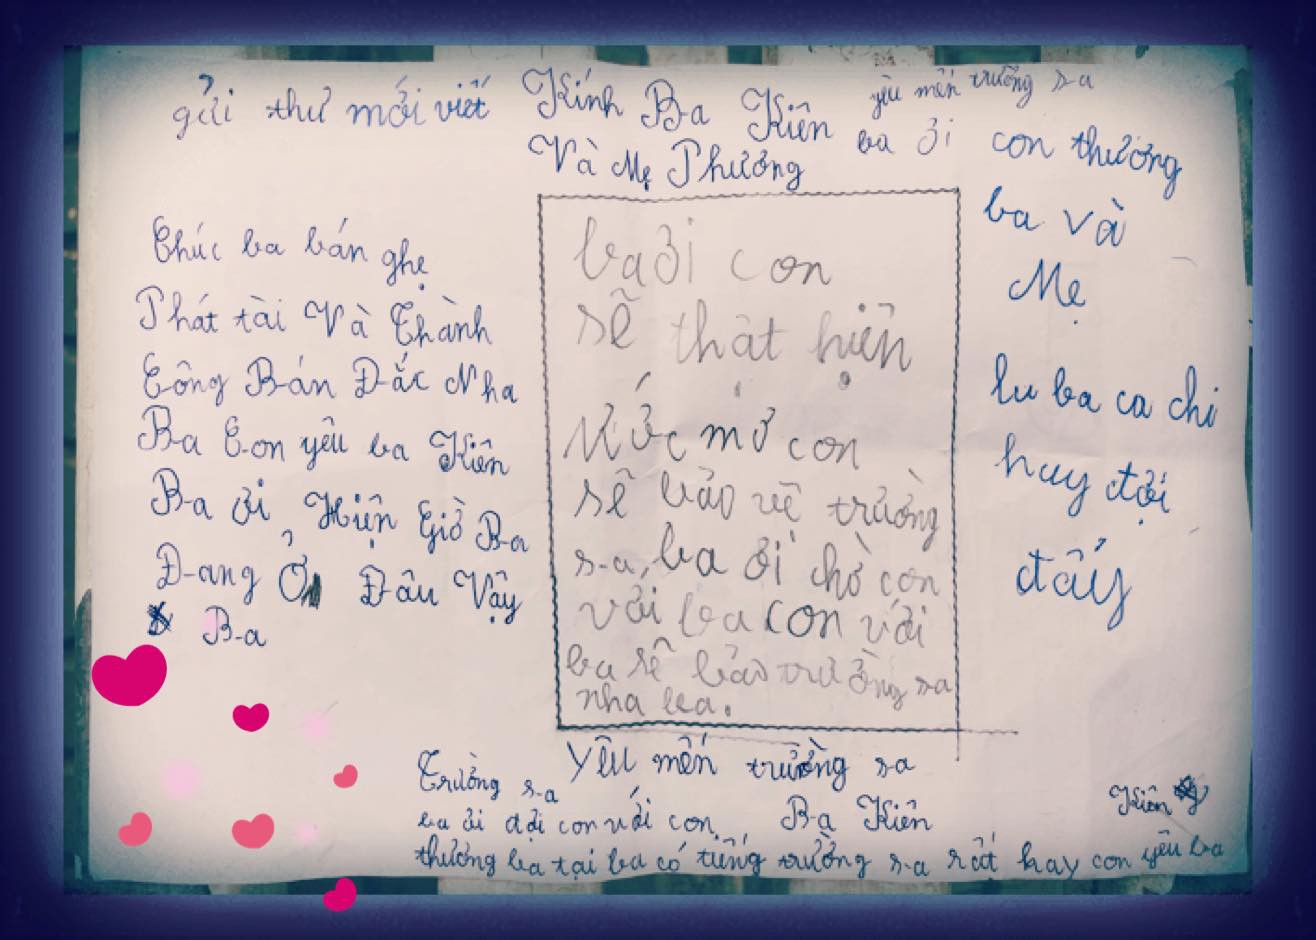 gửi thư mới viết
Kính Ba Kiên
Và Mẹ Phương
yêu mến trường sa
ba ơi con thương
ba và
Mẹ
Chúc ba bán ghẹ
Phát tài Và Thành
Công Bán Đắc Nha
Ba Con yêu ba Kiên
Ba ơi Hiện Giờ Ba
Đang Ở Đâu Vậy
Ba
ba ơi con
sẽ thật hiện
ước mơ con
sẽ bảo vệ trường
sa, ba ơi chờ con
với ba con với
ba sẽ bảo trường sa
nha ba.
lu ba ca chi
huy đợi
đấy
yêu mến trường sa
Trường sa
ba ơi đợi con với con
Ba Kiên
Kiên
thương ba tại ba có tiếng trường sa rất hay con yêu ba